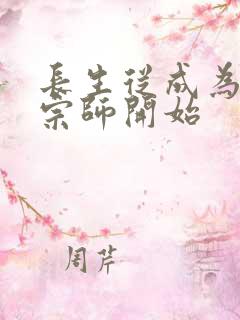 長生從成為
宗師開始
周芹